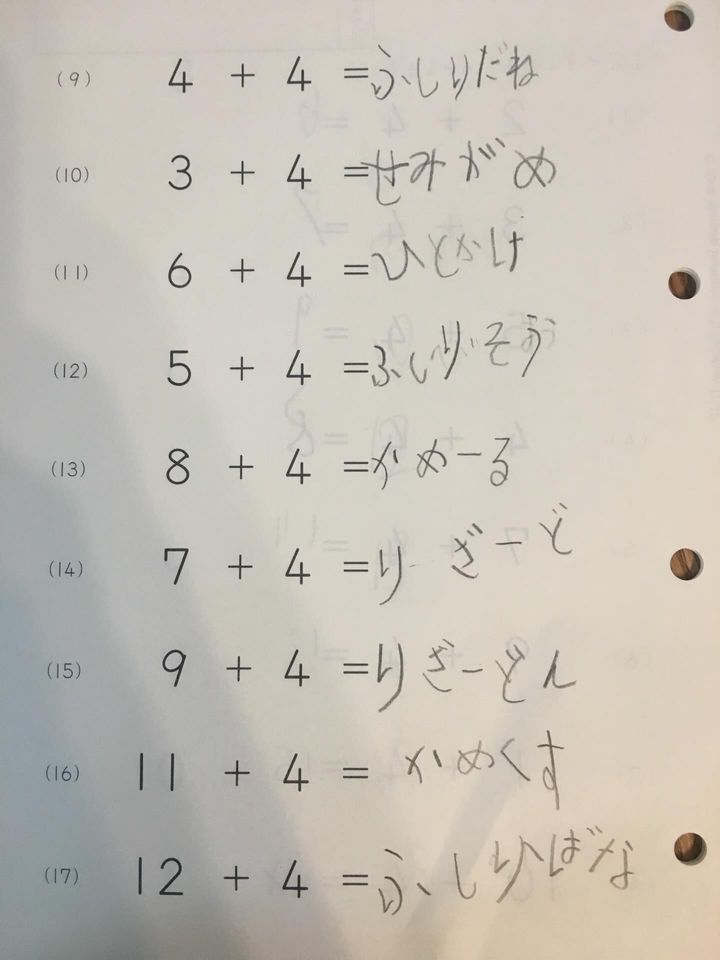 (9) 4 + 4 =ふしりだね
(10) 3 + 4 =せみがめ
(11) 6 + 4 =ひとかけ
(12) 5 + 4 =ふしりそう
(13) 8 + 4 =かめーる
(14) 7 + 4 =りざーど
(15) 9 + 4 =りざーどん
(16) 11 + 4 = かめくす
(17) 12 + 4 =ふしりばな